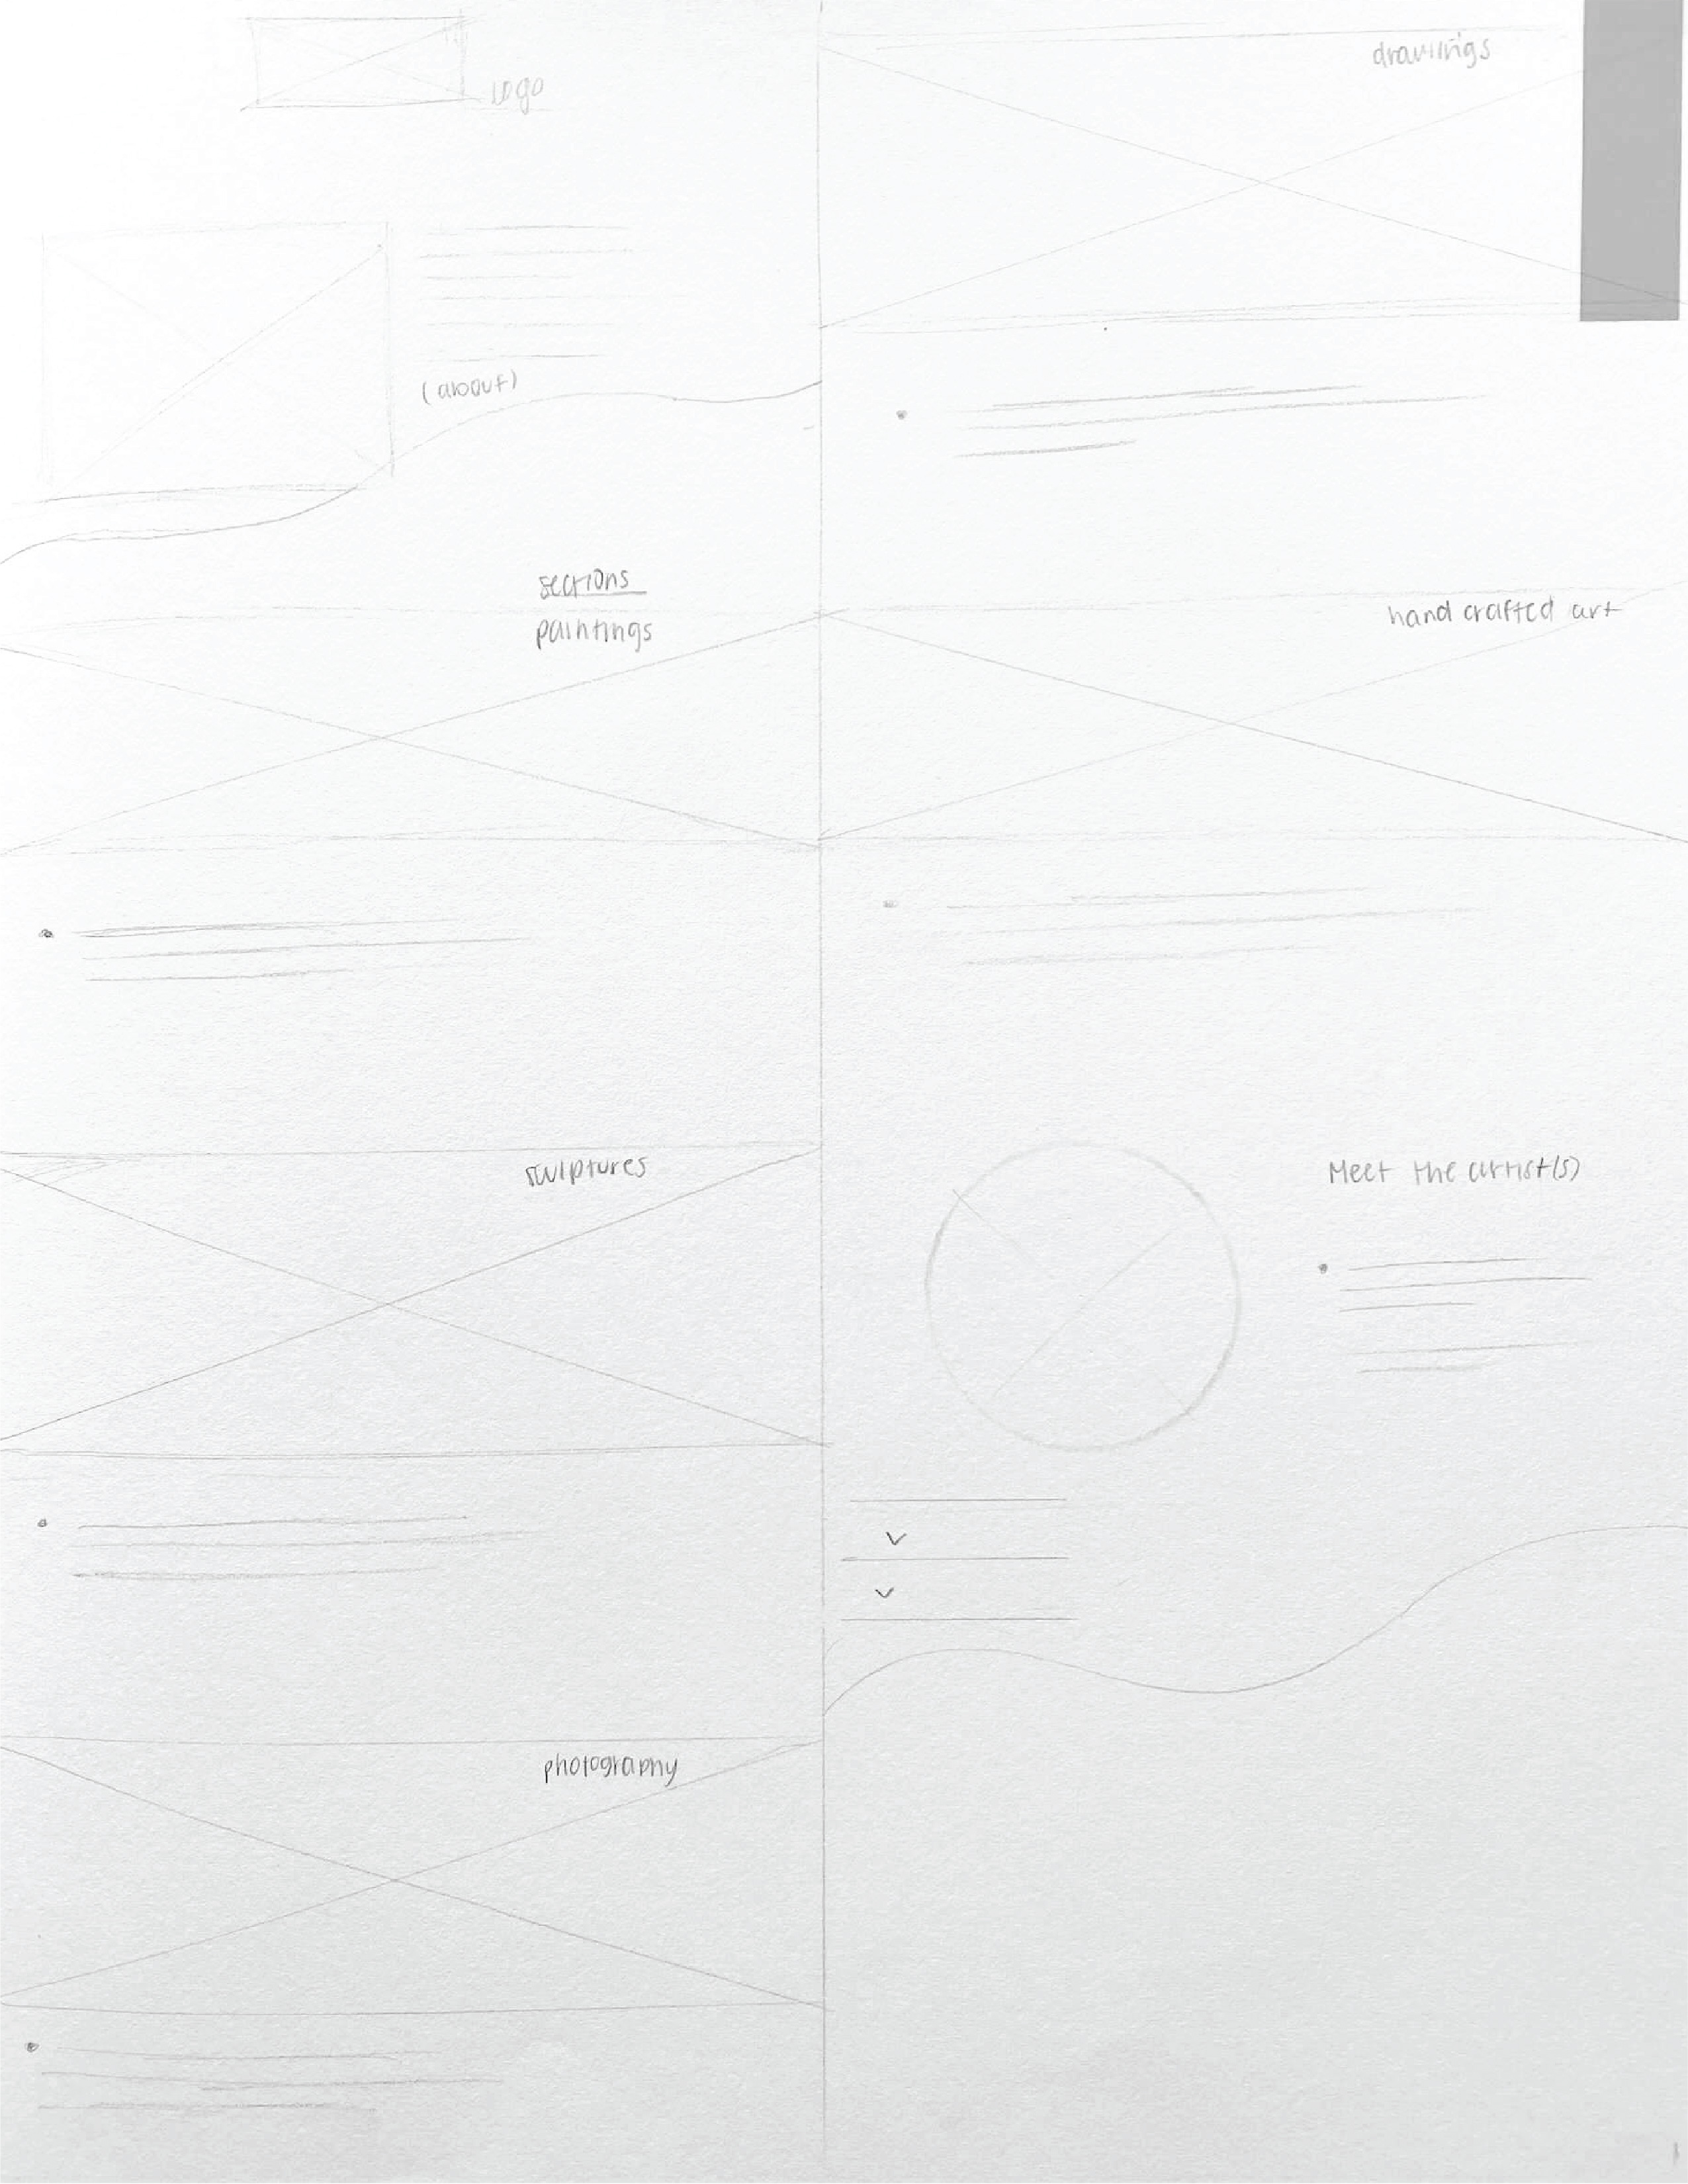 logo
(about)
sections
paintings
sculptures
photography
drawings
hand crafted art
Meet the artist(s)